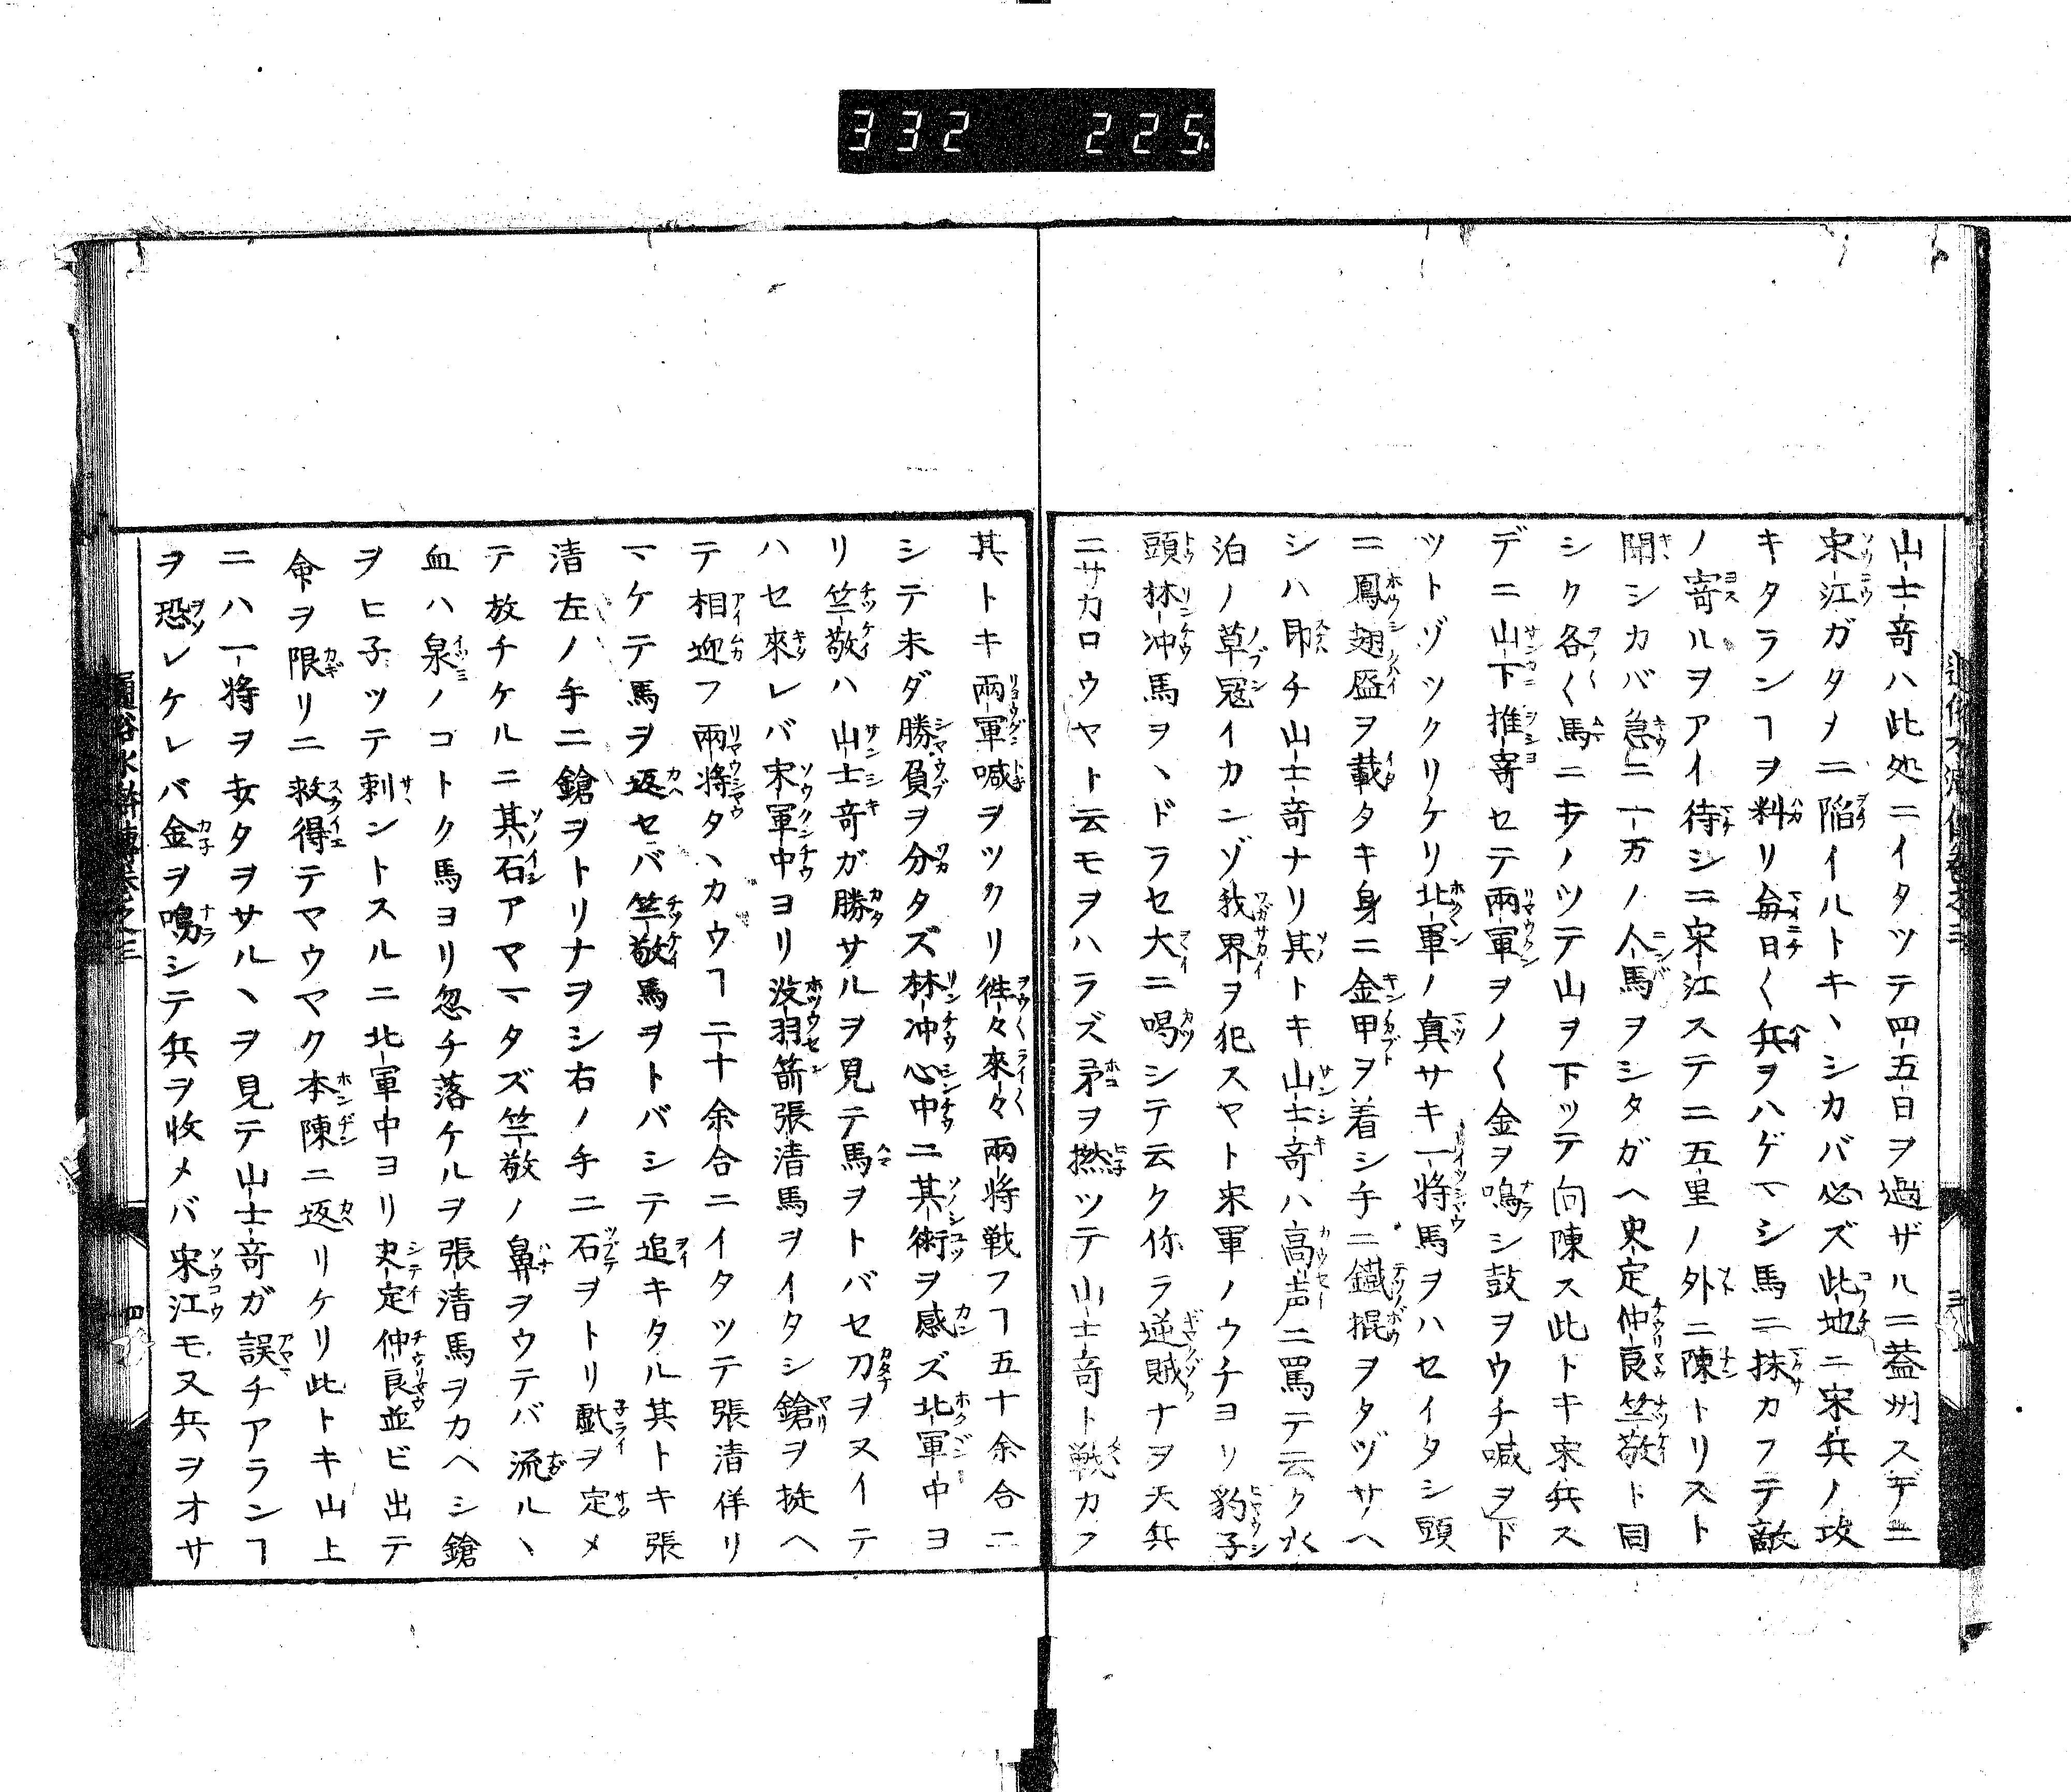 332 225
山士奇ハ此処ニイタツテ四五日ヲ過ザルニ蓋州スデニ
宋江ガタメニ陥イルトキヽシカバ必ズ此地ニ宋兵ノ攻
キタランヿヲ料リ毎日〱兵ヲハゲマシ馬ニ抹カフテ敵
ノ寄ルヲアイ待シニ宋江ステニ五里ノ外ニ陳トリスト
聞シカバ急ニ一万ノ人馬ヲシタガヘ史定仲良竺敬ト同
シク各〱馬ニ打ノツテ山ヲ下ツテ向陳ス此トキ宋兵ス
デニ山下推寄セテ兩軍ヲノ〱金ヲ鳴シ鼓ヲウチ喊ヲド
ツトゾツクリケリ北軍ノ真サキ一将馬ヲハセイタシ頭
ニ鳳翅盔ヲ載タキ身ニ金甲ヲ着シ手ニ鐵棍ヲタヅサヘ
シハ即チ山士奇ナリ其トキ山士奇ハ高声ニ罵テ云ク水
泊ノ草冦イカンゾ我界ヲ犯スヤト宋軍ノウチヨリ豹子
頭林冲馬ヲヽドラセ大ニ喝シテ云ク你ラ逆賊ナヲ天兵
ニサカロウヤト云モヲハラズ矛ヲ撚ツテ山士奇ト戦カフ
其トキ兩軍喊ヲツクリ徃々來々兩将戦フヿ五十余合ニ
シテ未ダ勝負ヲ分タズ林冲心中ニ其術ヲ感ズ北軍中ヨ
リ竺敬ハ山士奇ガ勝サルヲ見テ馬ヲトバセ刀ヲヌイテ
ハセ來レバ宋軍中ヨリ没羽箭張清馬ヲイタシ鎗ヲ挺ヘ
テ相迎フ兩将タヽカウヿ二十余合ニイタツテ張清佯リ
マケテ馬ヲ返セバ竺敬馬ヲトバシテ追キタル其トキ張
清左ノ手ニ鎗ヲトリナヲシ右ノ手ニ石ヲトリ覰ヲ定メ
テ放チケルニ其石アヤマタズ竺敬ノ鼻ヲウテバ流ルヽ
血ハ泉ノコトク馬ヨリ忽チ落ケルヲ張清馬ヲカヘシ鎗
ヲヒ子ツテ刺ントスルニ北軍中ヨリ史定仲良並ビ出テ
命ヲ限リニ救得テマウマク本陳ニ返リケリ此トキ山上
ニハ一将ヲ〓タヲサルヽヲ見テ山士奇ガ誤チアランヿ
ヲ恐レケレバ金ヲ鳴シテ兵ヲ收メバ宋江モ又兵ヲオサ
通俗水滸傳卷之三
四